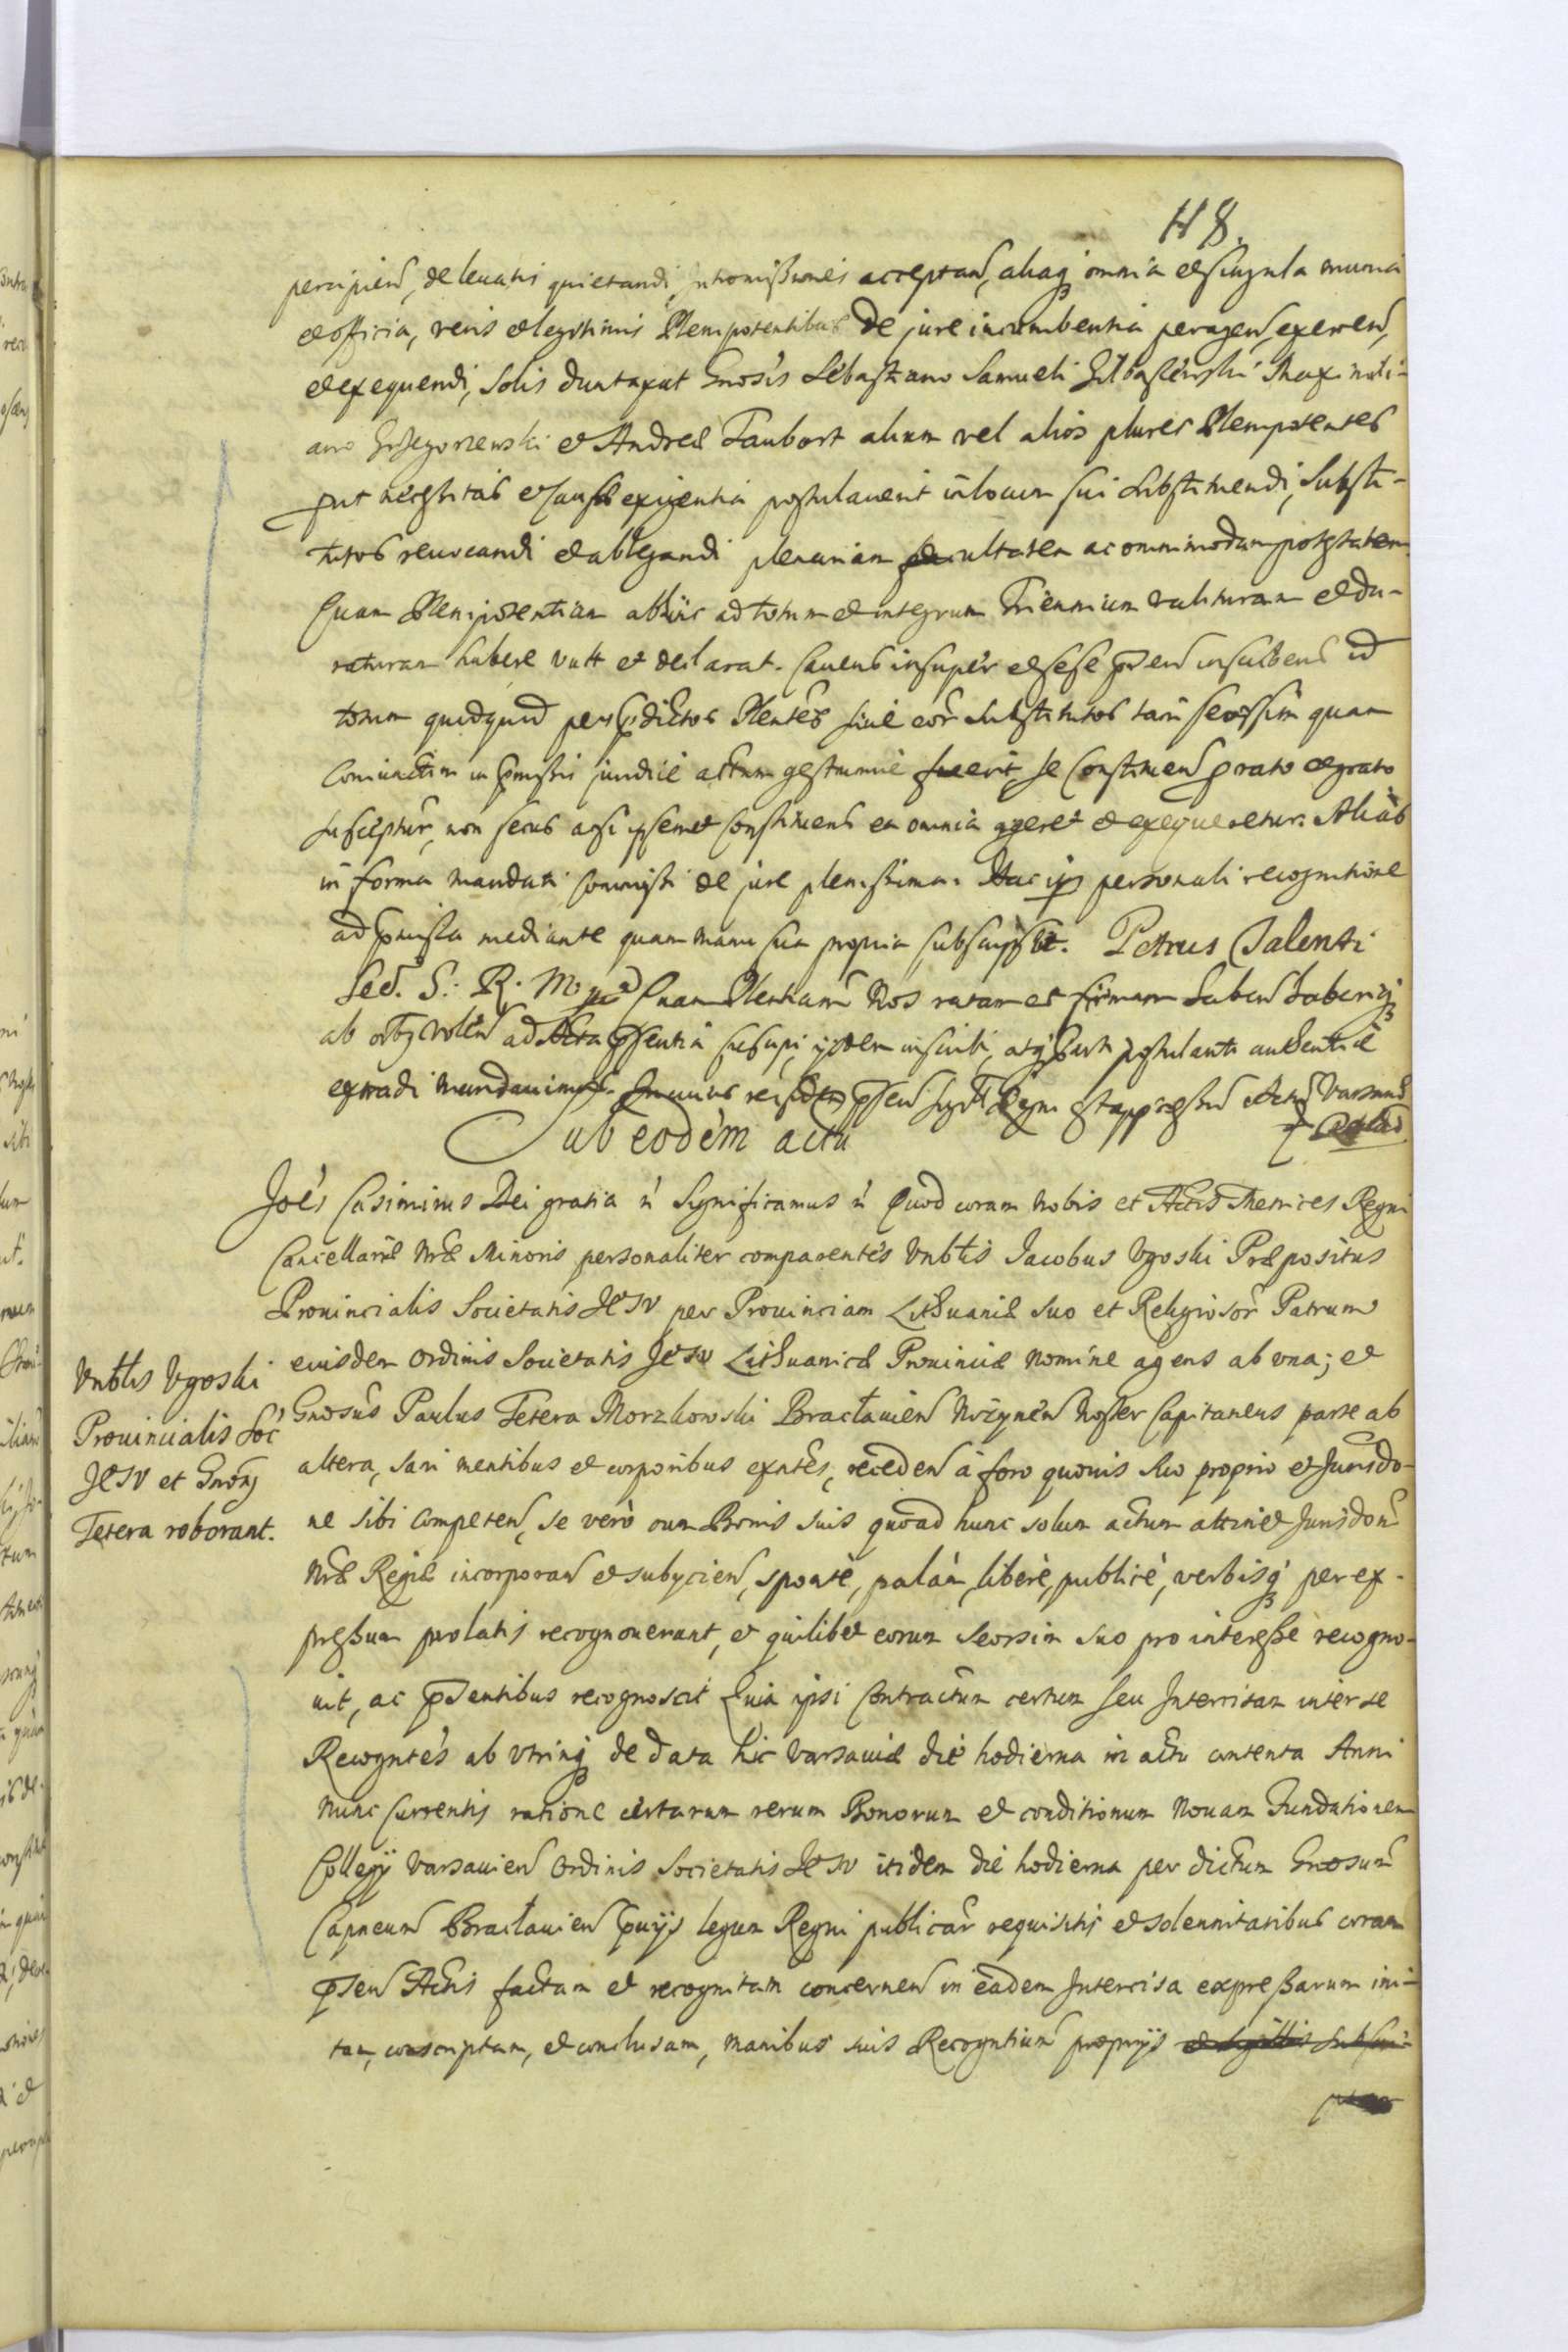 118.
percipien, de levatis quietandi, intromissiones acceptan, aliaq omnia et singula munia
et officia, veris et legitimis Plenipotentibus de jure incumbentia peragen, exercen,
et exequendi, solis duntaxat Gnosis Sebastiano Samueli Maximili-
ano Grzegorzewski et Andreæ Taubert alium vel alios plures Plenipotentes
put necessitas et causæ exigentia postulaverit in locum sui substituendi, substi-
tutos revocandi et ablegandi plenariam facultatem ac omnimodam potestatem
Quam Plenipotentiam abhinc ad totum et integrum Triennium valituram et du-
raturam habere vult et declarat. Cavens insuper et sese pnden inscribens id
totum quidquid per pdictos Plentes sive eor substitutos tam seorsim quam
coniunctim in pmissis juridicè actum gestumve fuerit, se Constituen p rato et grato
suscepturu, non secus ac si ipsemet constituens ea omnia ageret et exequeretur. Alias
in forma mandati commissi de jure plenissima. Hac ips personali recognitione
ad pmissa mediante quam manu sua propria subscripsit. Petrus Talenti
Sec. S. R. M. Quam Plentiam Nos ratam et firmam haben haberiq
ab orbz volen ad Acta psentia suscipi, ijsdem inscribi, atq parti postulanti authenticè
extradi mandavimus. In cuius rei fidem psen Sigill Regni est appressu Actu Varsaviæ
Sub eodem actu
Joes Casimirus Dei gratia rc Significamus rc Quod coram Nobis et Actis Metrices Regni
Cancellariæ Nræ Minoris personaliter comparentes Vnblis Jacobus Vgoski Præpositus
Provincialis Societatis JESV per Provinciam Lithuaniæ suo et Religiosor Patrum
eiusdem ordinis Societatis JESV Lithuanicæ Provinciæ nomine agens ab una; et
Gnosus Paulus Tetera Morzkowski Bracłavien Niżynen Noster Capitaneus parte ab
altera, sani mentibus et corporibus exntes, receden à foro quovis suo proprio et Jurisdo-
ne sibi competen, se verò cum Bonis suis quoad hunc solum actum attinet Jurisdoni
Nræ Regiæ incorporan et subijcien, sponte, palàm, liberè, publicè, verbisq per ex-
pressum prolatis recognoverunt, et quilibet eorum seorsim suo pro interesse recogno-
vit, ac psentibus recognoscit Quia ipsi Contractum certum seu Intercisam inter se
Recogntes ab vtrinq de data hic Varsaviæ die hodierna in actu contenta Anni
nunc currentis ratione certarum rerum Bonorum et conditionum novam Fundationem
Collegij Varsavien ordinis Societatis JESV itidem die hodierna per dictum Gnosum
Capneum Bracłavien pvijs legum Regni publicar requisitis et solennitatibus coram
psen Actis factam et recognitam concernen in eadem Intercisa expressarum ini-
tam, conscriptam, et conclusam, manibus suis Recogntium proprijs et sigillis subscri-
ptam
Vnblis Vgoski
Provincialis Soc
JESV et Gnosus
Tetera roborant.